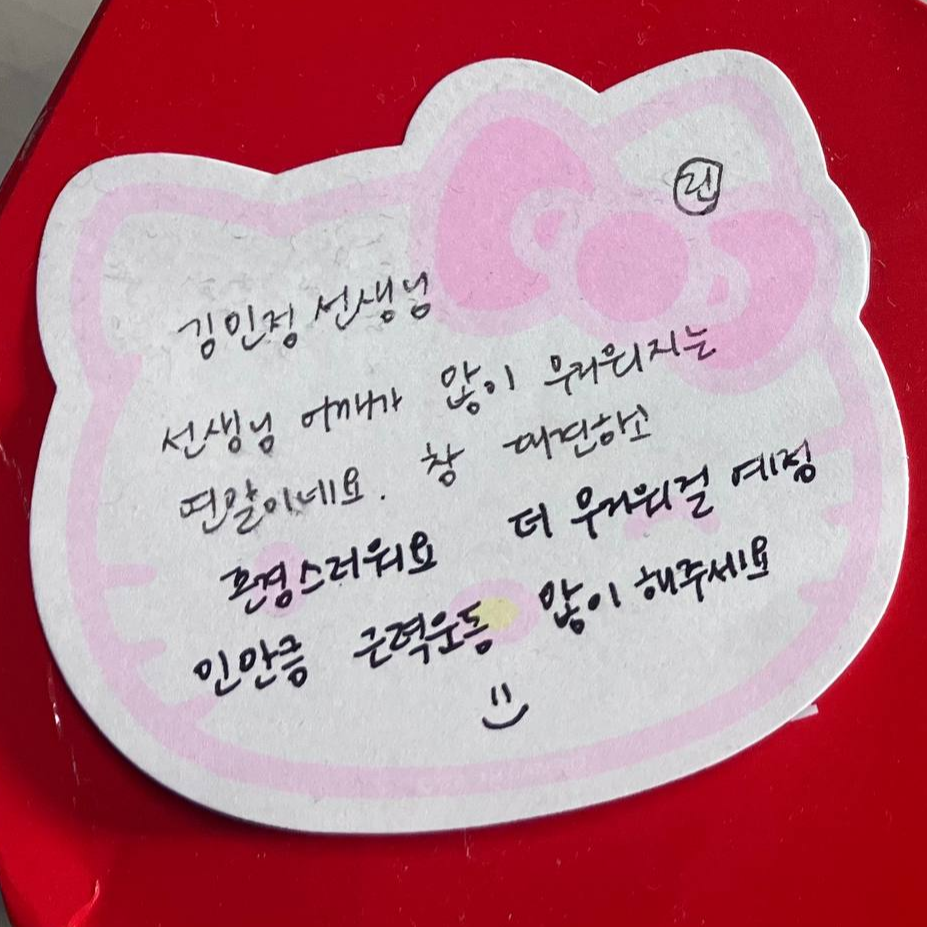 린
김민정 선생님
선생님 어깨가 많이 무거워지는
연말이네요. 참 대견하고
존경스러워요 더 무거워질 예정
인만큼 근력운동 많이 해주세요